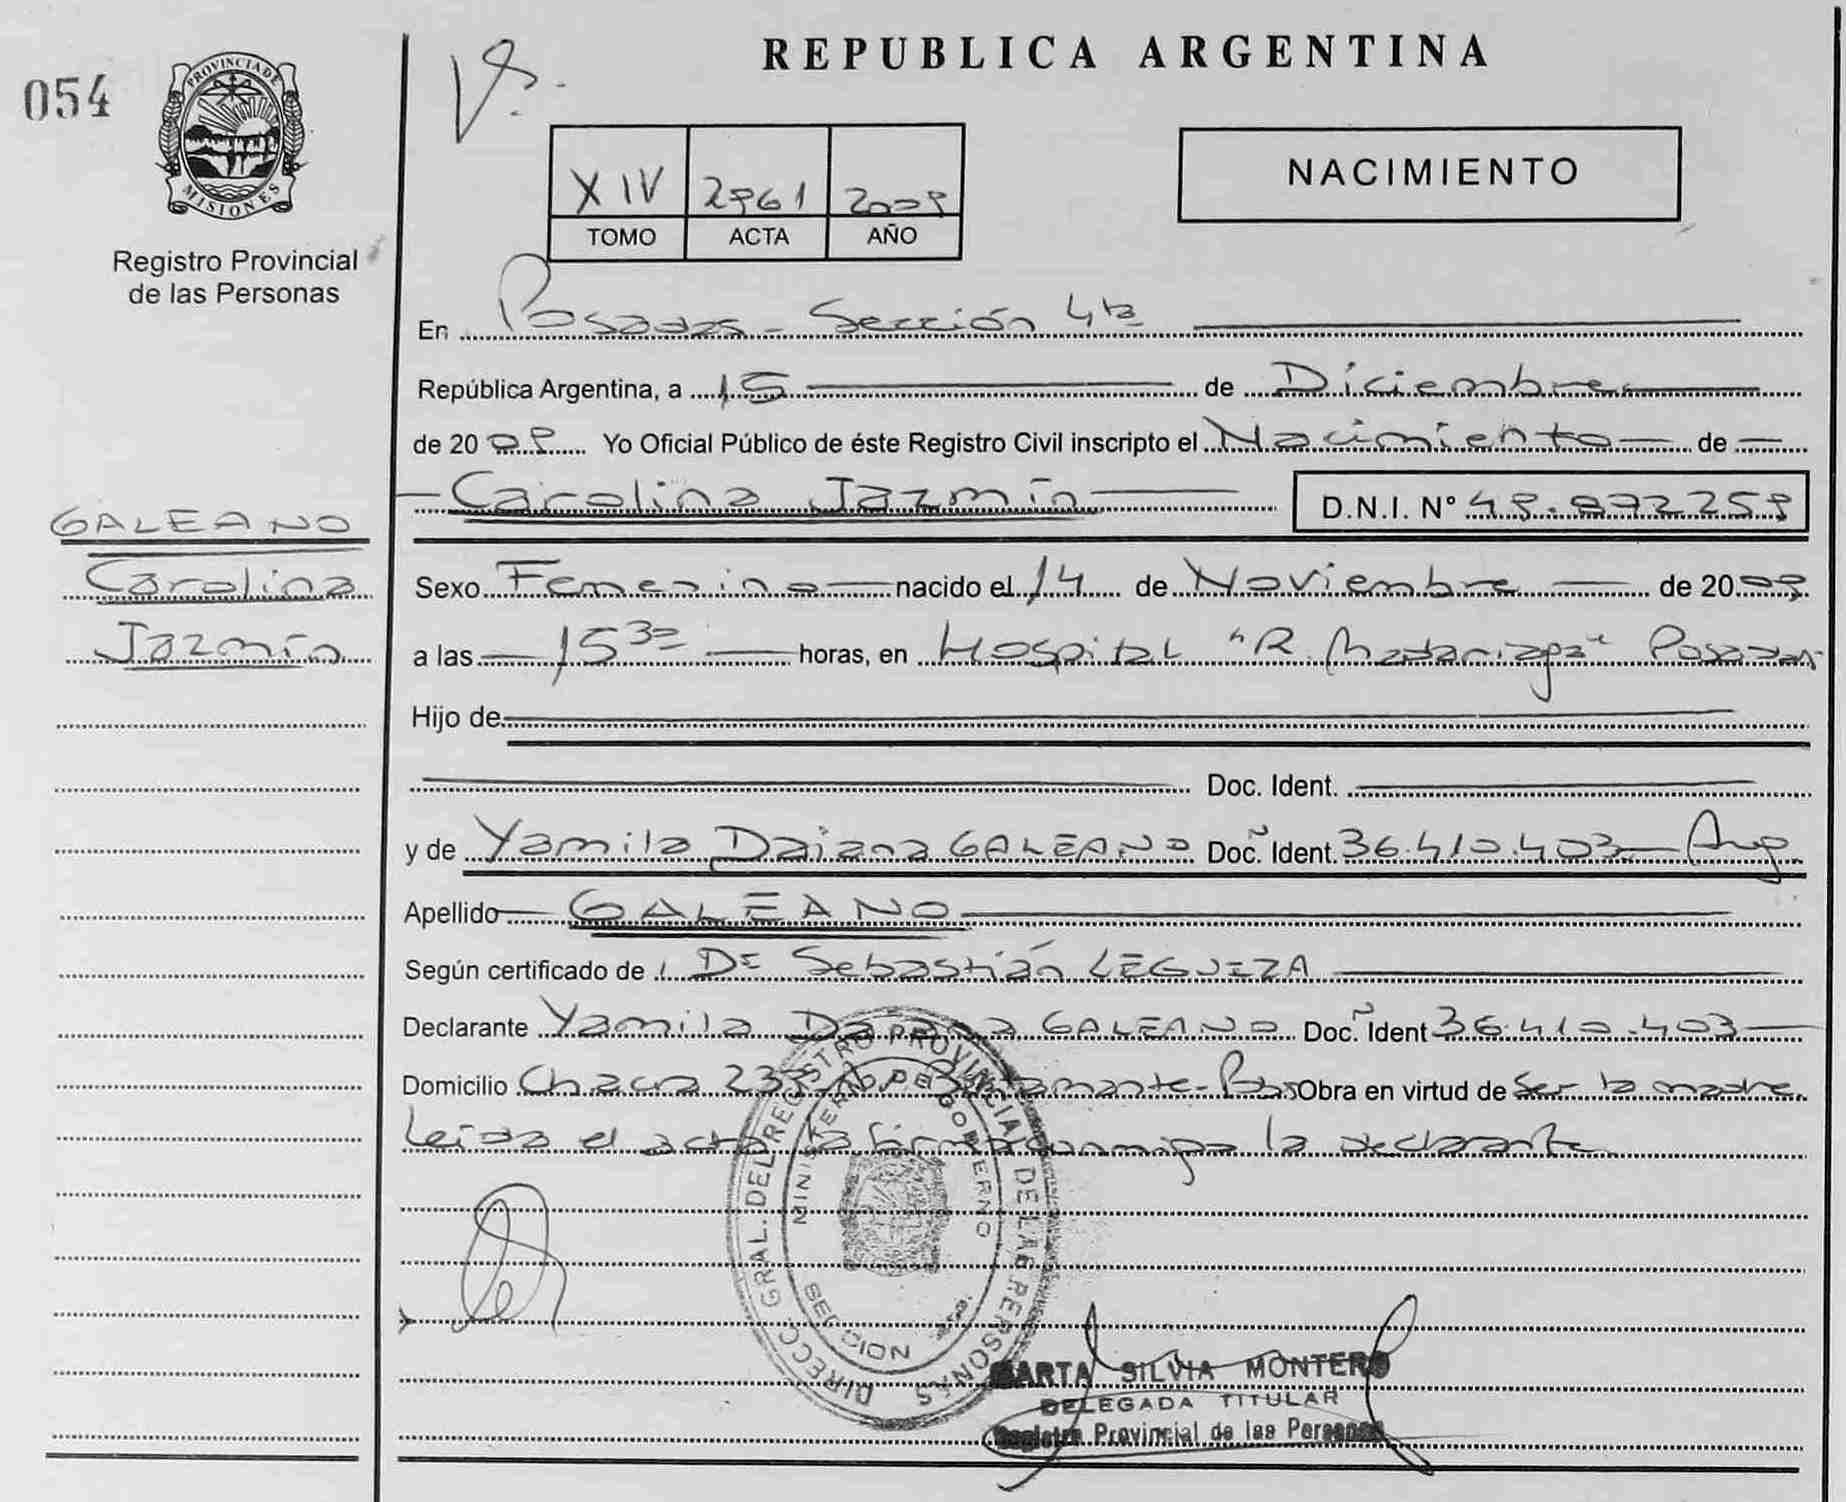 054
PROVINCIA DE
MISIONES
Registro Provincial
de las Personas
REPUBLICA ARGENTINA
XIV 2961 2009
TOMO ACTA AÑO
NACIMIENTO
En Posadas - Sección 4ta
República Argentina, a 15 de Diciembre
de 2009 Yo Oficial Público de éste Registro Civil inscripto el Nacimiento de
Carolina Jazmín D.N.I. N° 49.872259
GALEANO
Carolina
Jazmín
Sexo Femenino nacido el 14 de Noviembre de 2009
a las 15 30 horas, en Hospital "R. Madariaga" Posadas
Hijo de
Doc. Ident.
y de Yamila Daiana GALEANO Doc. Ident. 36.410.403 - Arg.
Apellido GALEANO
Según certificado de Sebastián LEGUIZA
Declarante Yamila Daiana GALEANO Doc. Ident 36.410.403
Domicilio Chacra Obra en virtud de Ser la madre.
Leída el acta la firma conmigo la declarante
DIRECC. GRAL. DEL REGISTRO PROVINCIAL DE LAS PERSONAS
MINISTERIO DE GOBIERNO
SECCION
MARTA SILVIA MONTERO
DELEGADA TITULAR
Registro Provincial de las Personas